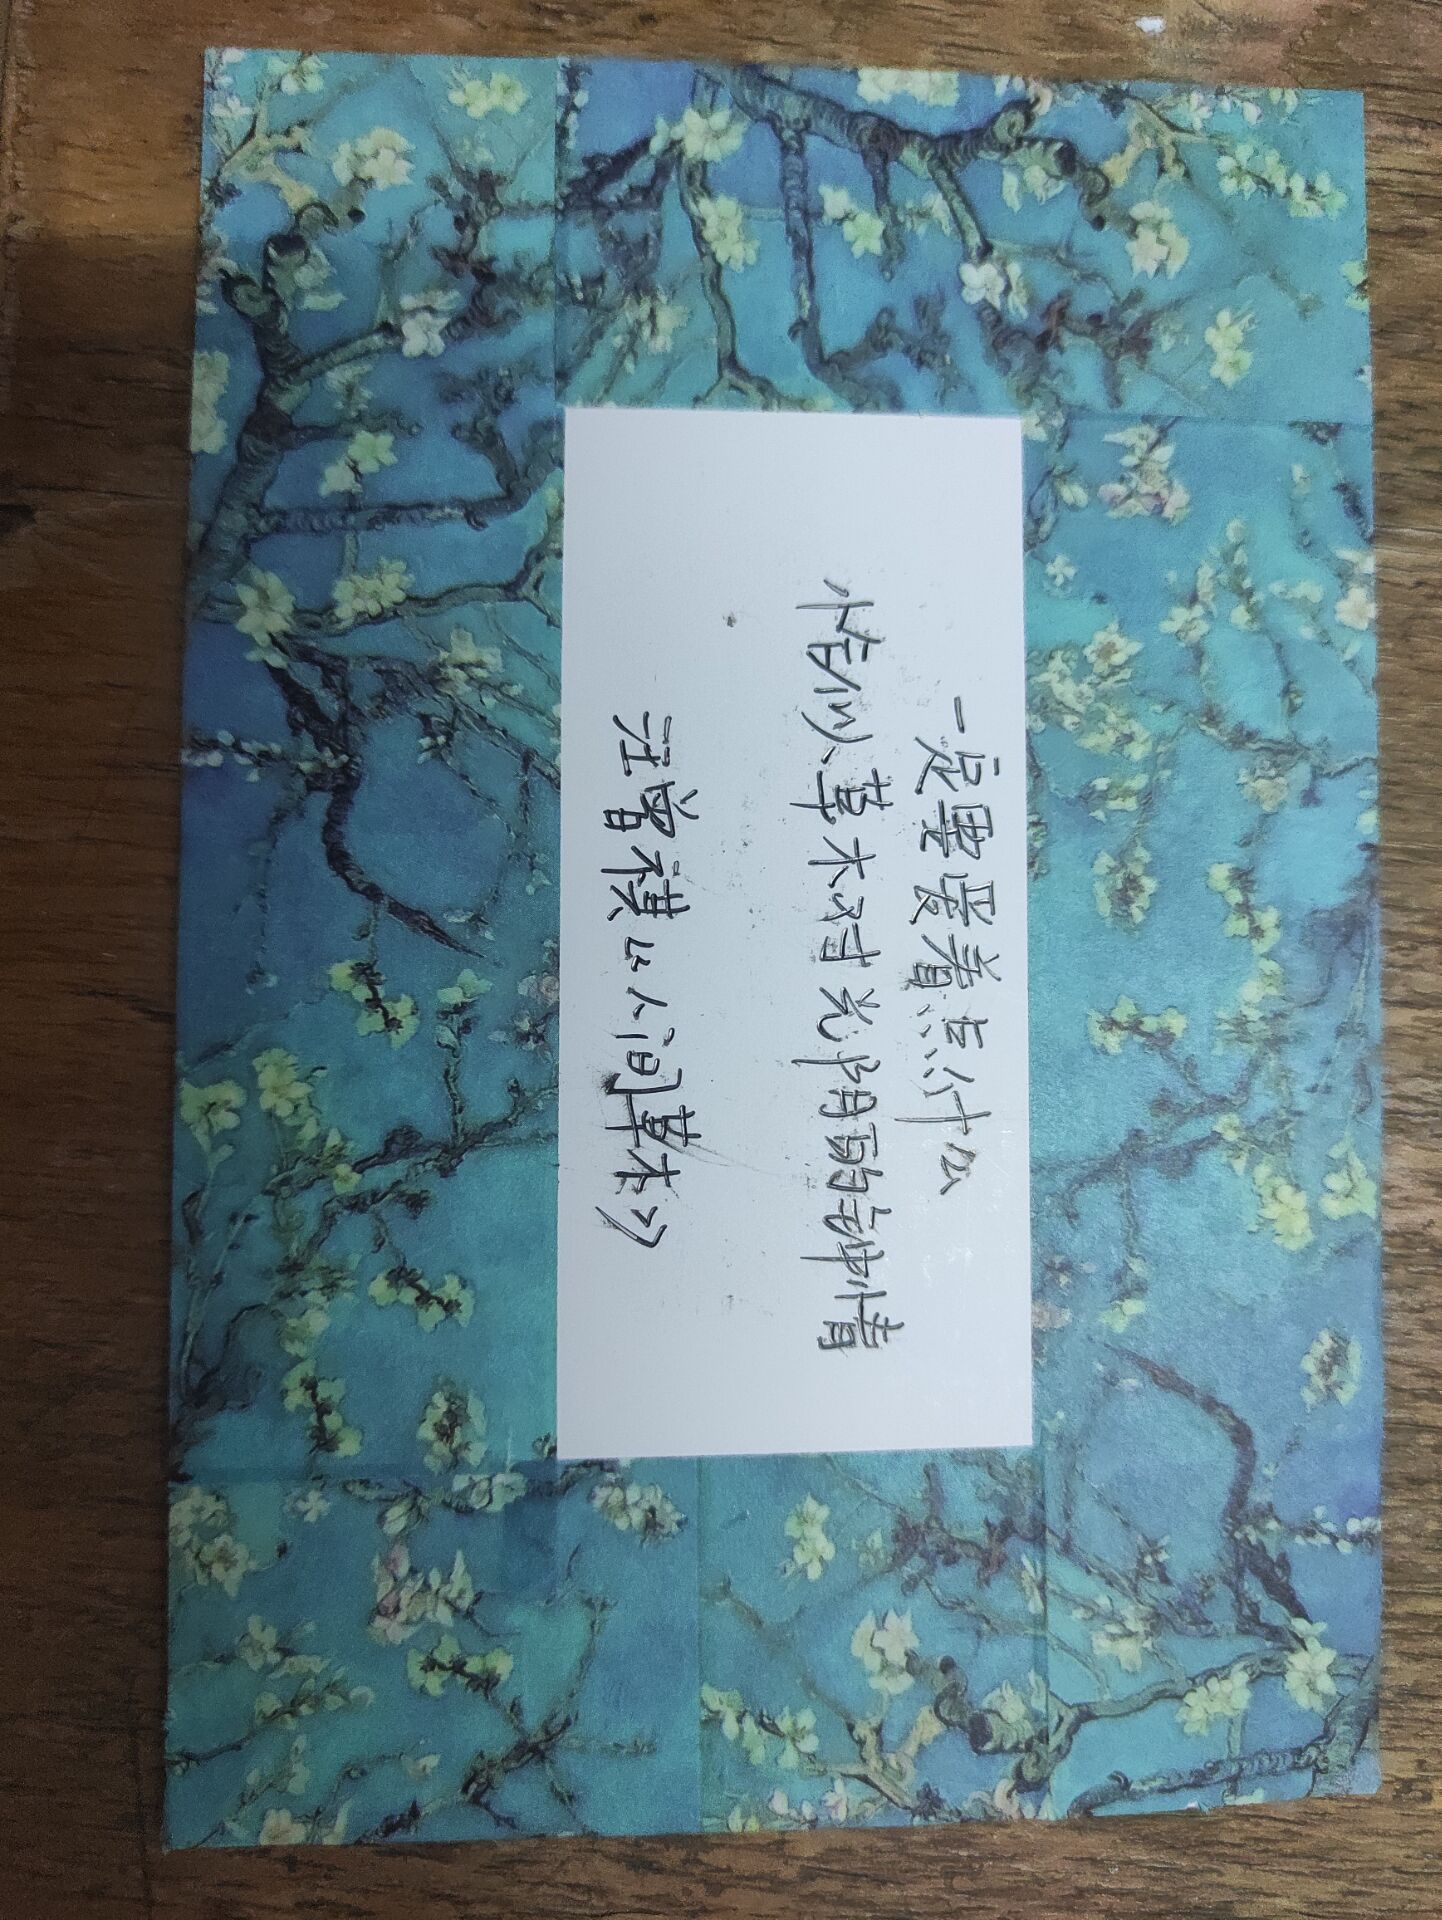 一定要爱着点什么
恰似草木对光阴的钟情
汪曾祺《人间草木》